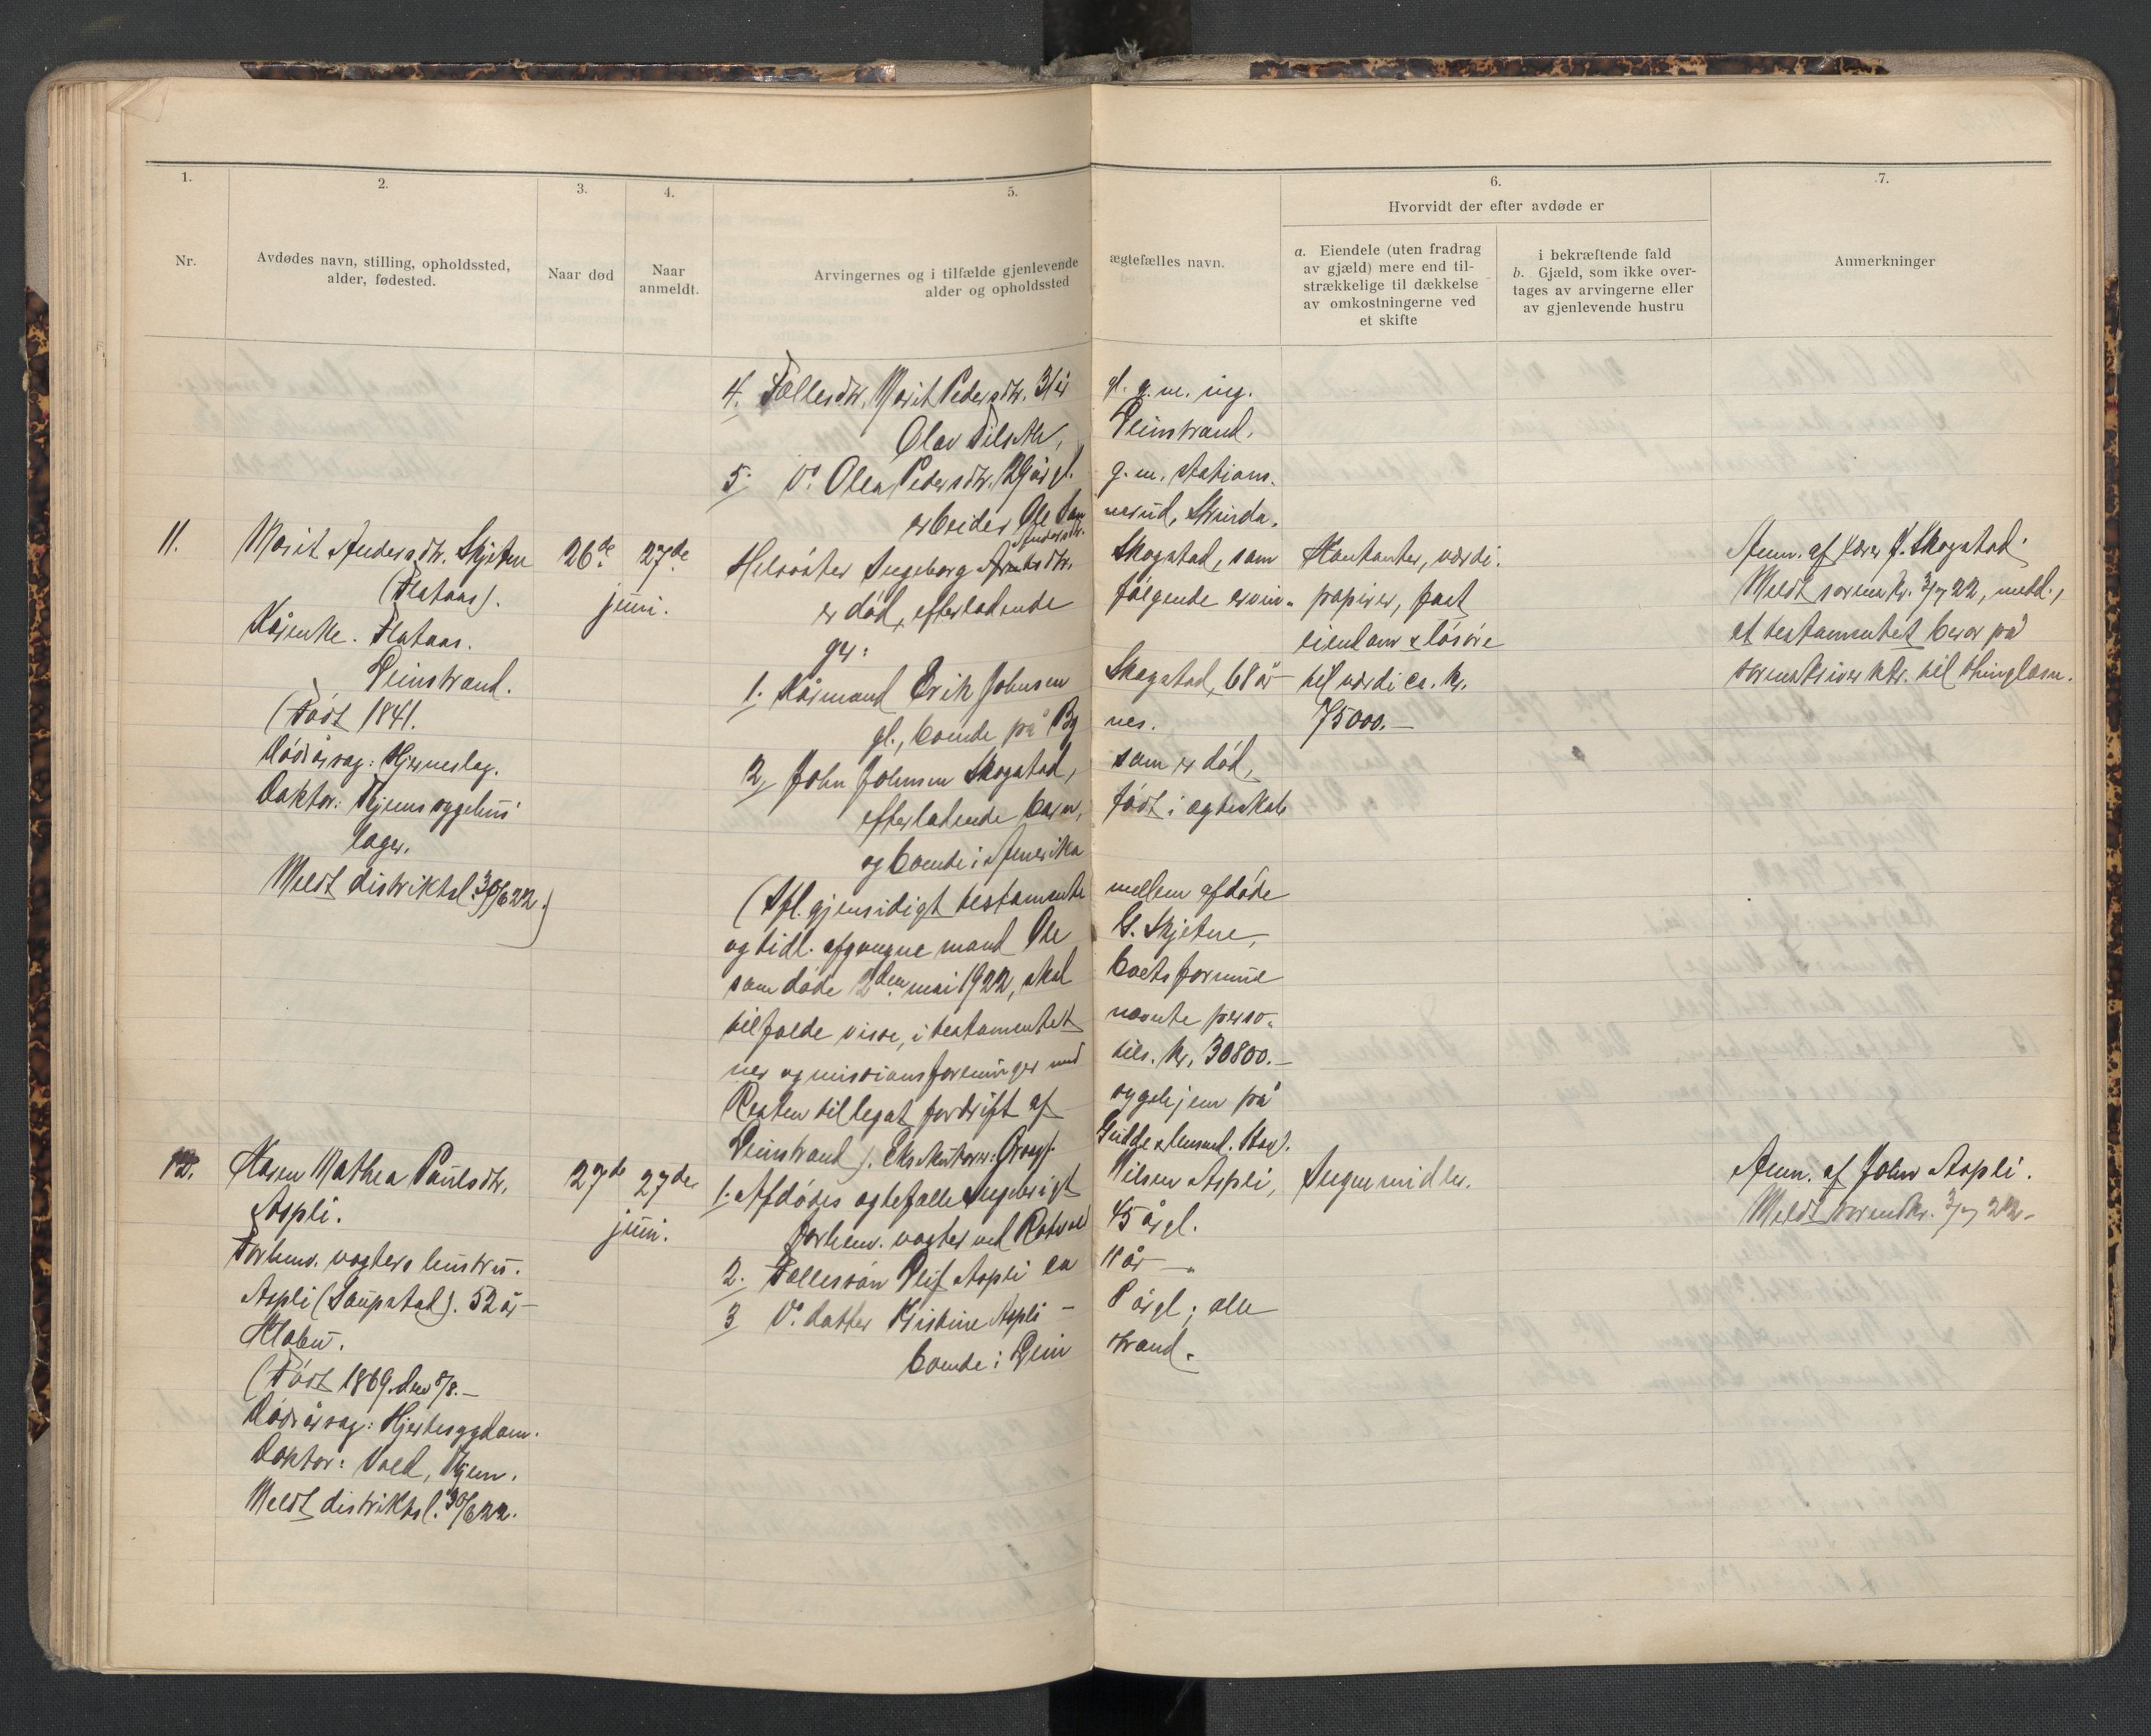 1.
2.
3.
4.
5.
6.
7.
Hvorvidt der efter avdøde er
Nr.
Avdødes navn, stilling, opholdssted,
alder, fødested.
Naar død
Naar
anmeldt.
Arvingernes og i tilfælde gjenlevende ægtefælles navn.
alder og opholdssted
a. Eiendele (uten fradrag
av gjæld) mere end til-
strækkelige til dækkelse
av omkostningerne ved
et skifte
i bekræftende fald
b. Gjæld, som ikke over-
tages av arvingerne eller
av gjenlevende hustru
Anmerkninger
4. Fællesdtr. Marit Pedersdtr. 31 år gl. g. m. ing.
Olav Tilseth, Leinstrand.
5. Do. Olea Pedersdtr. 29 år gl. g. m. stations-
arbeider Ole nerud, Strinda.
11.
Marit Andersdtr. Skjetne
(Flataas).
Kårenke. Flataas.
Leinstrand.
(Født 1841.
Dødsårsag: Hjerneslag.
Doktor: Tjems sygehus
læger.
Meldt distriktsl. 30/6 22.)
26de
27de
juni.
Helsøster Ingeborg Andersdtr. Skogstad, som
er død, efterladende følgende arvin-
ger:
1. Kårmand Erik Johnsen Skogstad, 68 år
gl., boende på By nes.
2. John Johnsen Skogstad, som er død,
efterladende barn, født i ægteskab
og boende i Amerika
(Ifl. gjensidigt testamente mellem afdøde
og tidl. afgangne mand Ole G. Skjetne,
som døde 2den mai 1922, skal boets formue
tilfalde visse, i testamentet nævnte perso-
ner og missionsforeninger med tils. kr. 30800.-
Resten til legat for drift af sygehjem på
Leinstrand). Eksekutorer:
Kontanter, værdi-
papirer, fast
eiendom & løsøre
til værdi ca. kr.
75000.-
Anm. af lærer J. Skogstad.
Meldt sorenskr. 3/7 22, medd.,
at testamentet beror på
sorenskriverktr. til thinglæsn.
12.
Karen Mathea Paulsdtr.
Aspli.
Forhenv. vogters hustru.
Aspli (Saupstad). 52 år
Klæbu.
(Født 1869. den 8/8.-
Dødsårsag: Hjertesygdom.
Doktor: Vold, Tjem.
Meldt distriktsl. 30/6 22.
27de
27de
juni.
1. Afdødes ægtefælle Ingebrigt Nilsen Aspli,
forhenv. vogter ved Rotvold 45 år gl.
2. Fællessøn Leif Aspli ca 11 år - "
3 Do. datter Kristine Aspli - 8 år gl; alle
boende i Lein strand.
Ingen midler.
Anm. af John Aspli.
Meldt sorenskr. 3/7 22-